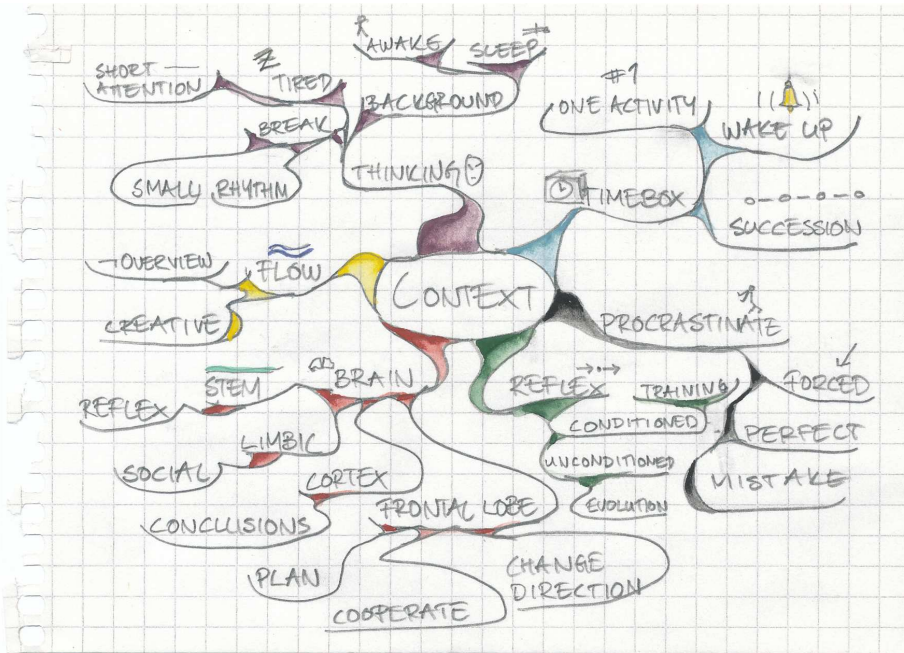 CONTEXT
THINKING
BACKGROUND
AWAKE
SLEEP
TIRED
SHORT
ATTENTION
BREAK
SMALL RHYTHM
TIMEBOX
#1
ONE ACTIVITY
WAKE UP
SUCCESSION
PROCRASTINATE
FORCED
PERFECT
MISTAKE
REFLEX
CONDITIONED
TRAINING
UNCONDITIONED
EVOLUTION
BRAIN
STEM
REFLEX
LIMBIC
SOCIAL
CORTEX
CONCLUSIONS
FRONTAL LOBE
PLAN
COOPERATE
CHANGE
DIRECTION
FLOW
OVERVIEW
CREATIVE